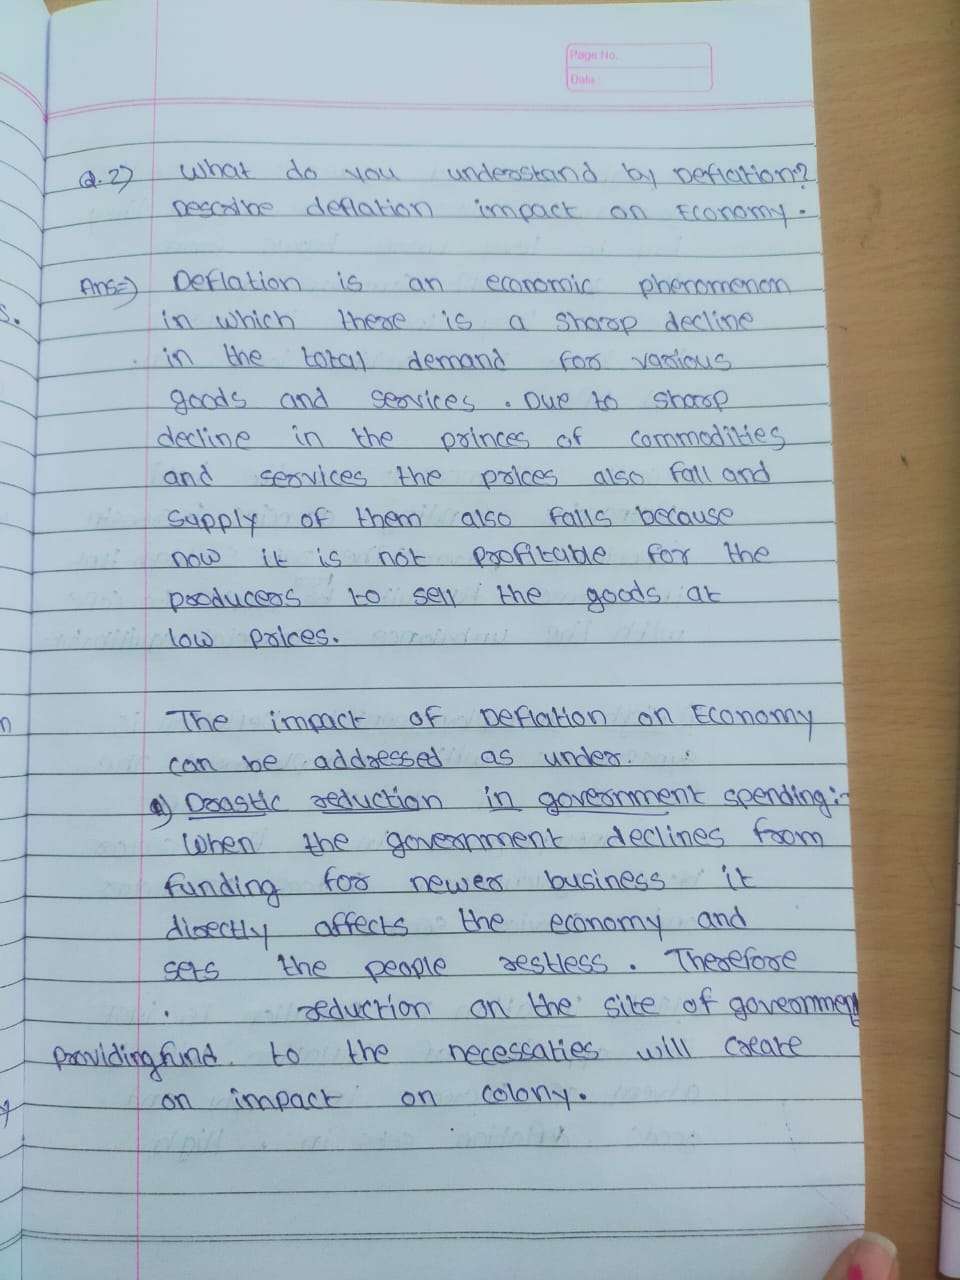 Page No.
Date
Q.2) What do you understand by Deflation?
Describe deflation impact on Economy.
Ans⇒) Deflation is an economic phenomenon
in which there is a sharp decline
in the total demand for various
goods and services. Due to sharp
decline in the princes of commodities
and services the prices also fall and
supply of them also falls because
now it is not profitable for the
producers to sell the goods at
low prices.
The impact of Deflation on Economy
can be addressed as under.
a) Drastic reduction in government spending:-
When the government declines from
funding for newer business it
directly affects the economy and
sets the people restless. Therefore
reduction on the site of government
providing fund. to the necessaties will create
an impact on colony.
s.
n
y